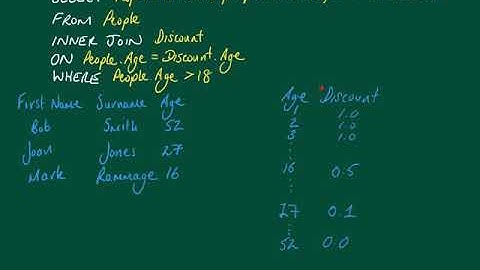 FROM People
INNER JOIN Discount
ON People.Age = Discount.Age
WHERE People Age > 18
First Name Surname Age
Bob Smith 52
Joan Jones 27
Mark Rammage 16
Age Discount
1 1.0
2 1.0
3 1.0
16 0.5
27 0.1
52 0.0